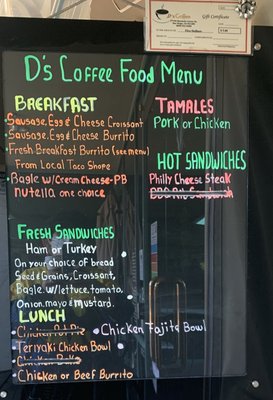 D's Coffee
Gift Certificate
D's Coffee Food Menu
BREAKFAST
Sausage, Egg & Cheese Croissant
Sausage, Egg & Cheese Burrito
Fresh Breakfast Burrito (see menu)
From Local Taco Shope
Bagle w/Cream Cheese-PB
nutella one choice
TAMALES
Pork or Chicken
HOT SANDWICHES
Philly Cheese Steak
BBQ Rib Sandwich
FRESH SANDWICHES
Ham or Turkey
On your choice of bread
Seed and Grains, Croissant,
Bagle w/lettuce, tomato,
Onion, mayo & mustard.
LUNCH
Chicken Pot Pie
Chicken Fajita Bowl
Teriyaki Chicken Bowl
Chicken
Chicken or Beef Burrito